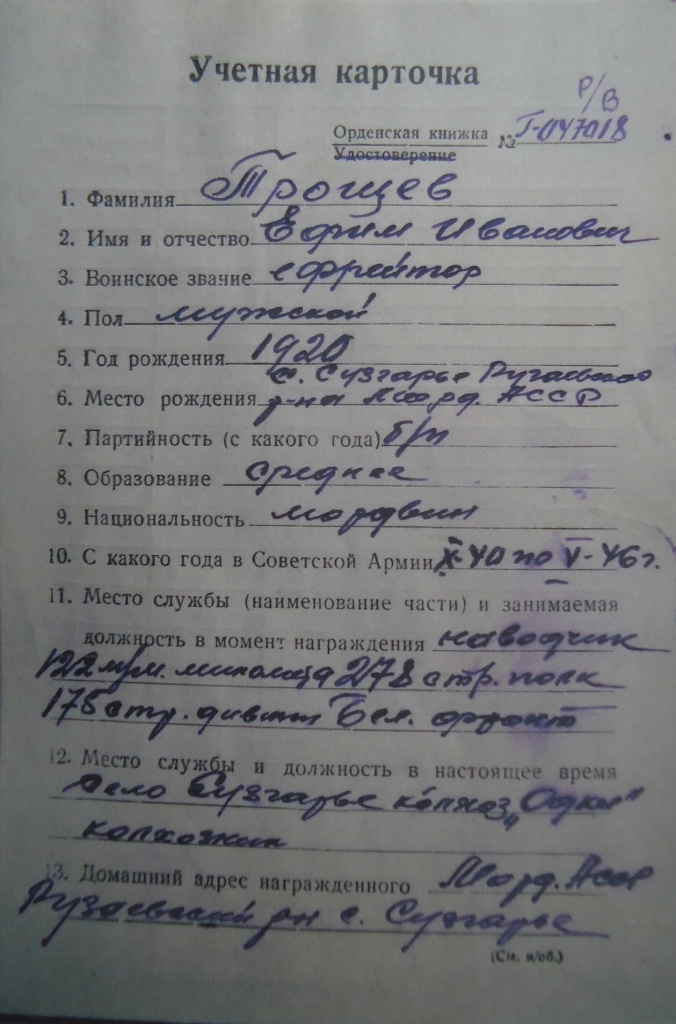 Учетная карточка
Р/В
Орденская книжка № Г-047018
Удостоверение
1. Фамилия Трощев
2. Имя и отчество Ефим Иванович
3. Воинское звание ефрейтор
4. Пол мужской
5. Год рождения 1920
с. Сузгарье Рузаевского
6. Место рождения р-на Морд. АССР
7. Партийность (с какого года) б/п
8. Образование среднее
9. Национальность мордвин
10. С какого года в Советской Армии X-40 по V-46 г.
11. Место службы (наименование части) и занимаемая
должность в момент награждения наводчик
122 м/м. миномета 278 стр. полк
175 стр. дивизии Бел. фронт
12. Место службы и должность в настоящее время
село Сузгарье колхоз
колхозник
13. Домашний адрес награжденного Морд. АССР
Рузаевский р-н с. Сузгарье
(См. н/об.)